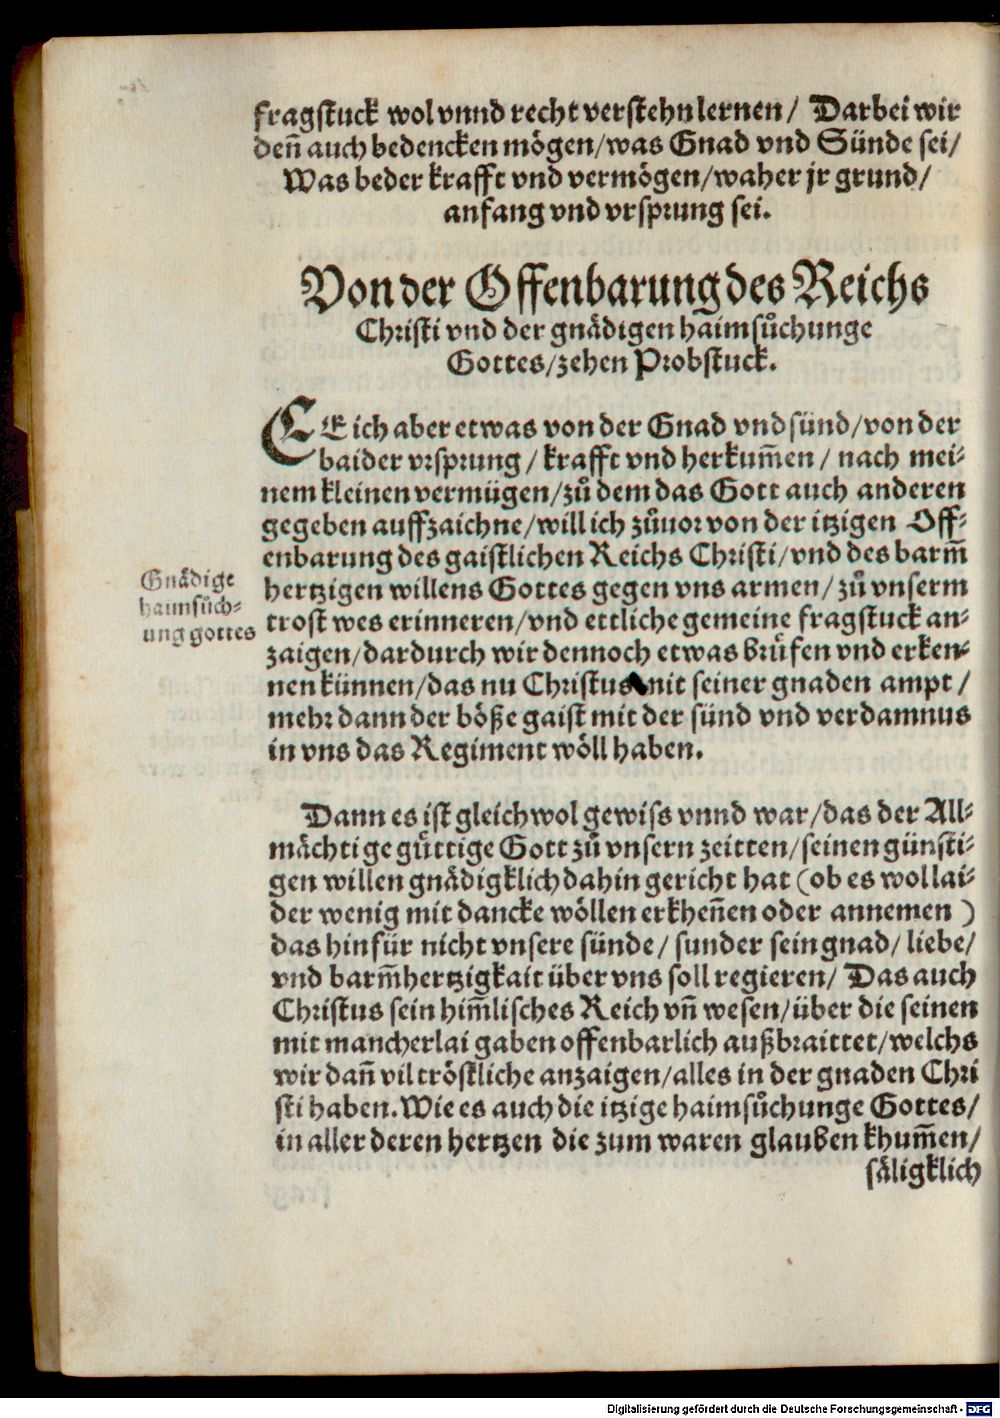 fragstuck wol vnnd recht verstehn lernen/ Darbei wir
deñ auch bedencken mögen/was Gnad vnd Sünde sei/
Was beder krafft vnd vermögen/waher jr grund/
anfang vnd vrsprung sei.
Von der Offenbarung des Reichs
Christi vnd der gnådigen haimsůchunge
Gottes/zehen Probstuck.
EE ich aber etwas von der Gnad vnd sünd/von der
baider vrsprung/ krafft vnd herkum̃en/ nach mei-
nem kleinen vermügen/zů dem das Gott auch anderen
gegeben auffzaichne/will ich zůuor von der itzigen Off-
enbarung des gaistlichen Reichs Christi/vnd des barm̃
hertzigen willens Gottes gegen vns armen/ zů vnserm
trost wes erinneren/vnd ettliche gemeine fragstuck an-
zaigen/dardurch wir dennoch etwas brůfen vnd erken-
nen künnen/das nu Christus mit seiner gnaden ampt/
mehr dann der böße gaist mit der sünd vnd verdamnus
in vns das Regiment wöll haben.
Gnådige
haimsůch-
ung gottes
Dann es ist gleichwol gewiss vnnd war/das der All-
måchtige gůttige Gott zů vnsern zeitten/seinen günsti-
gen willen gnådigklich dahin gericht hat (ob es wol lai-
der wenig mit dancke wöllen erkheñen oder annemen )
das hinfür nicht vnsere sünde/ sunder sein gnad/ liebe/
vnd barm̃hertzigkait über vns soll regieren/ Das auch
Christus sein him̃lisches Reich vñ wesen/über die seinen
mit mancherlai gaben offenbarlich außbraittet/welchs
wir dañ vil tröstliche anzaigen/alles in der gnaden Chri
sti haben. Wie es auch die itzige haimsůchunge Gottes/
in aller deren hertzen die zum waren glauben khum̃en/
såligklich
Digitalisierung gefördert durch die Deutsche Forschungsgemeinschaft - DFG